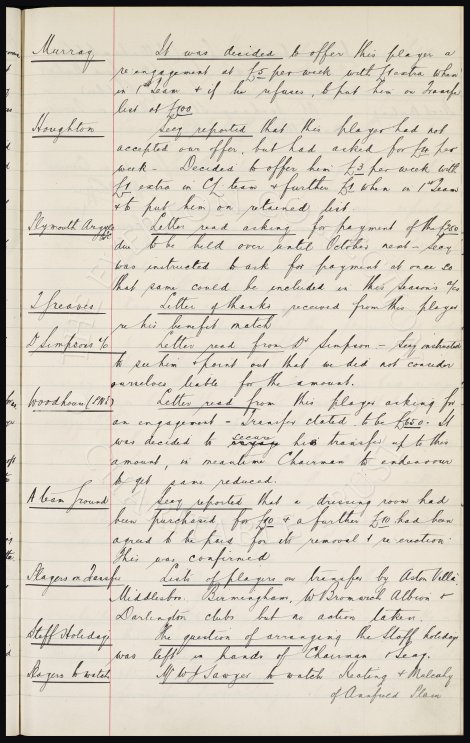 Murray It was decided to offer this player a
re engagement at £5 per week with £1 extra when
in 1st Team & if he refuses, to put him on Transfer
list at £100
Houghton Secy reported that this player had not
accepted our offer, but had asked for per
week - Decided to offer him £3 per week with
£1 extra in CL team & further £1 when in 1st Team
& to put him on retained list.
Plymouth Argyle Letter read asking for payment of the
due to be held over until October next - Secy
was instructed to ask for payment at once so
that same could be included in this Seasons a/cs
T Greaves Letter of thanks received from this player
re his benefit match
Dr Simpsons a/c Letter read from Dr Simpson - Secy instructed
to see him & point out that we did not consider
ourselves liable for the amount.
Woodhouse (PNE) Letter read from this player asking for
an engagement - Transfer stated to be £650. It
was decided to secure his transfer up to this
amount, in meantime Chairman to endeavour
to get same reduced.
A team Ground Secy reported that a dressing room had
been purchased for £40 & a further £10 had been
agreed to be paid for its removal & re-erection.
This was confirmed
Players on Transfer Lists of players on transfer by Aston Villa
Middlesbro, Birmingham, W Bromwich Albion &
Darlington clubs but no action taken.
Staff Holidays The question of arranging the Staff holidays
was left in hands of Chairman & Secy.
Players to watch Mr W J Sawyer to watch Keating & Mulcahy
of Annfield Plain